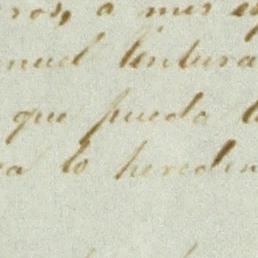 ros, a mis es
nuel Ventura
que pueda t
ra lo hereden